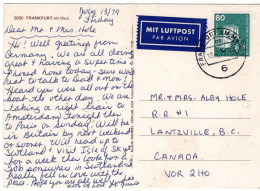 6000 FRANKFURT am Main
July 13/79
Friday
Dear Mr & Mrs Hole
Hi! Well greetings from
Germany. We are all doing
great & having a super time
phoned home today - sure was
great to talk to Brad & Mom!
Heard you were all out on the
boat the other day. We are
taking a night train to
Amsterdam tonight then
to Paris on Sunday. Will be
in Britain by next weekend
or sooner. Will head up to
Scotland & visit Isle of Skye
for a week then look for a
job somewhere in Scotland.
Really love it with the
place. Hope you are all
MIT LUFTPOST
PAR AVION
80
6
MR. + MRS. ALBY HOLE
R.R. #1
LANTZVILLE, B.C.
CANADA.
V0R 2H0